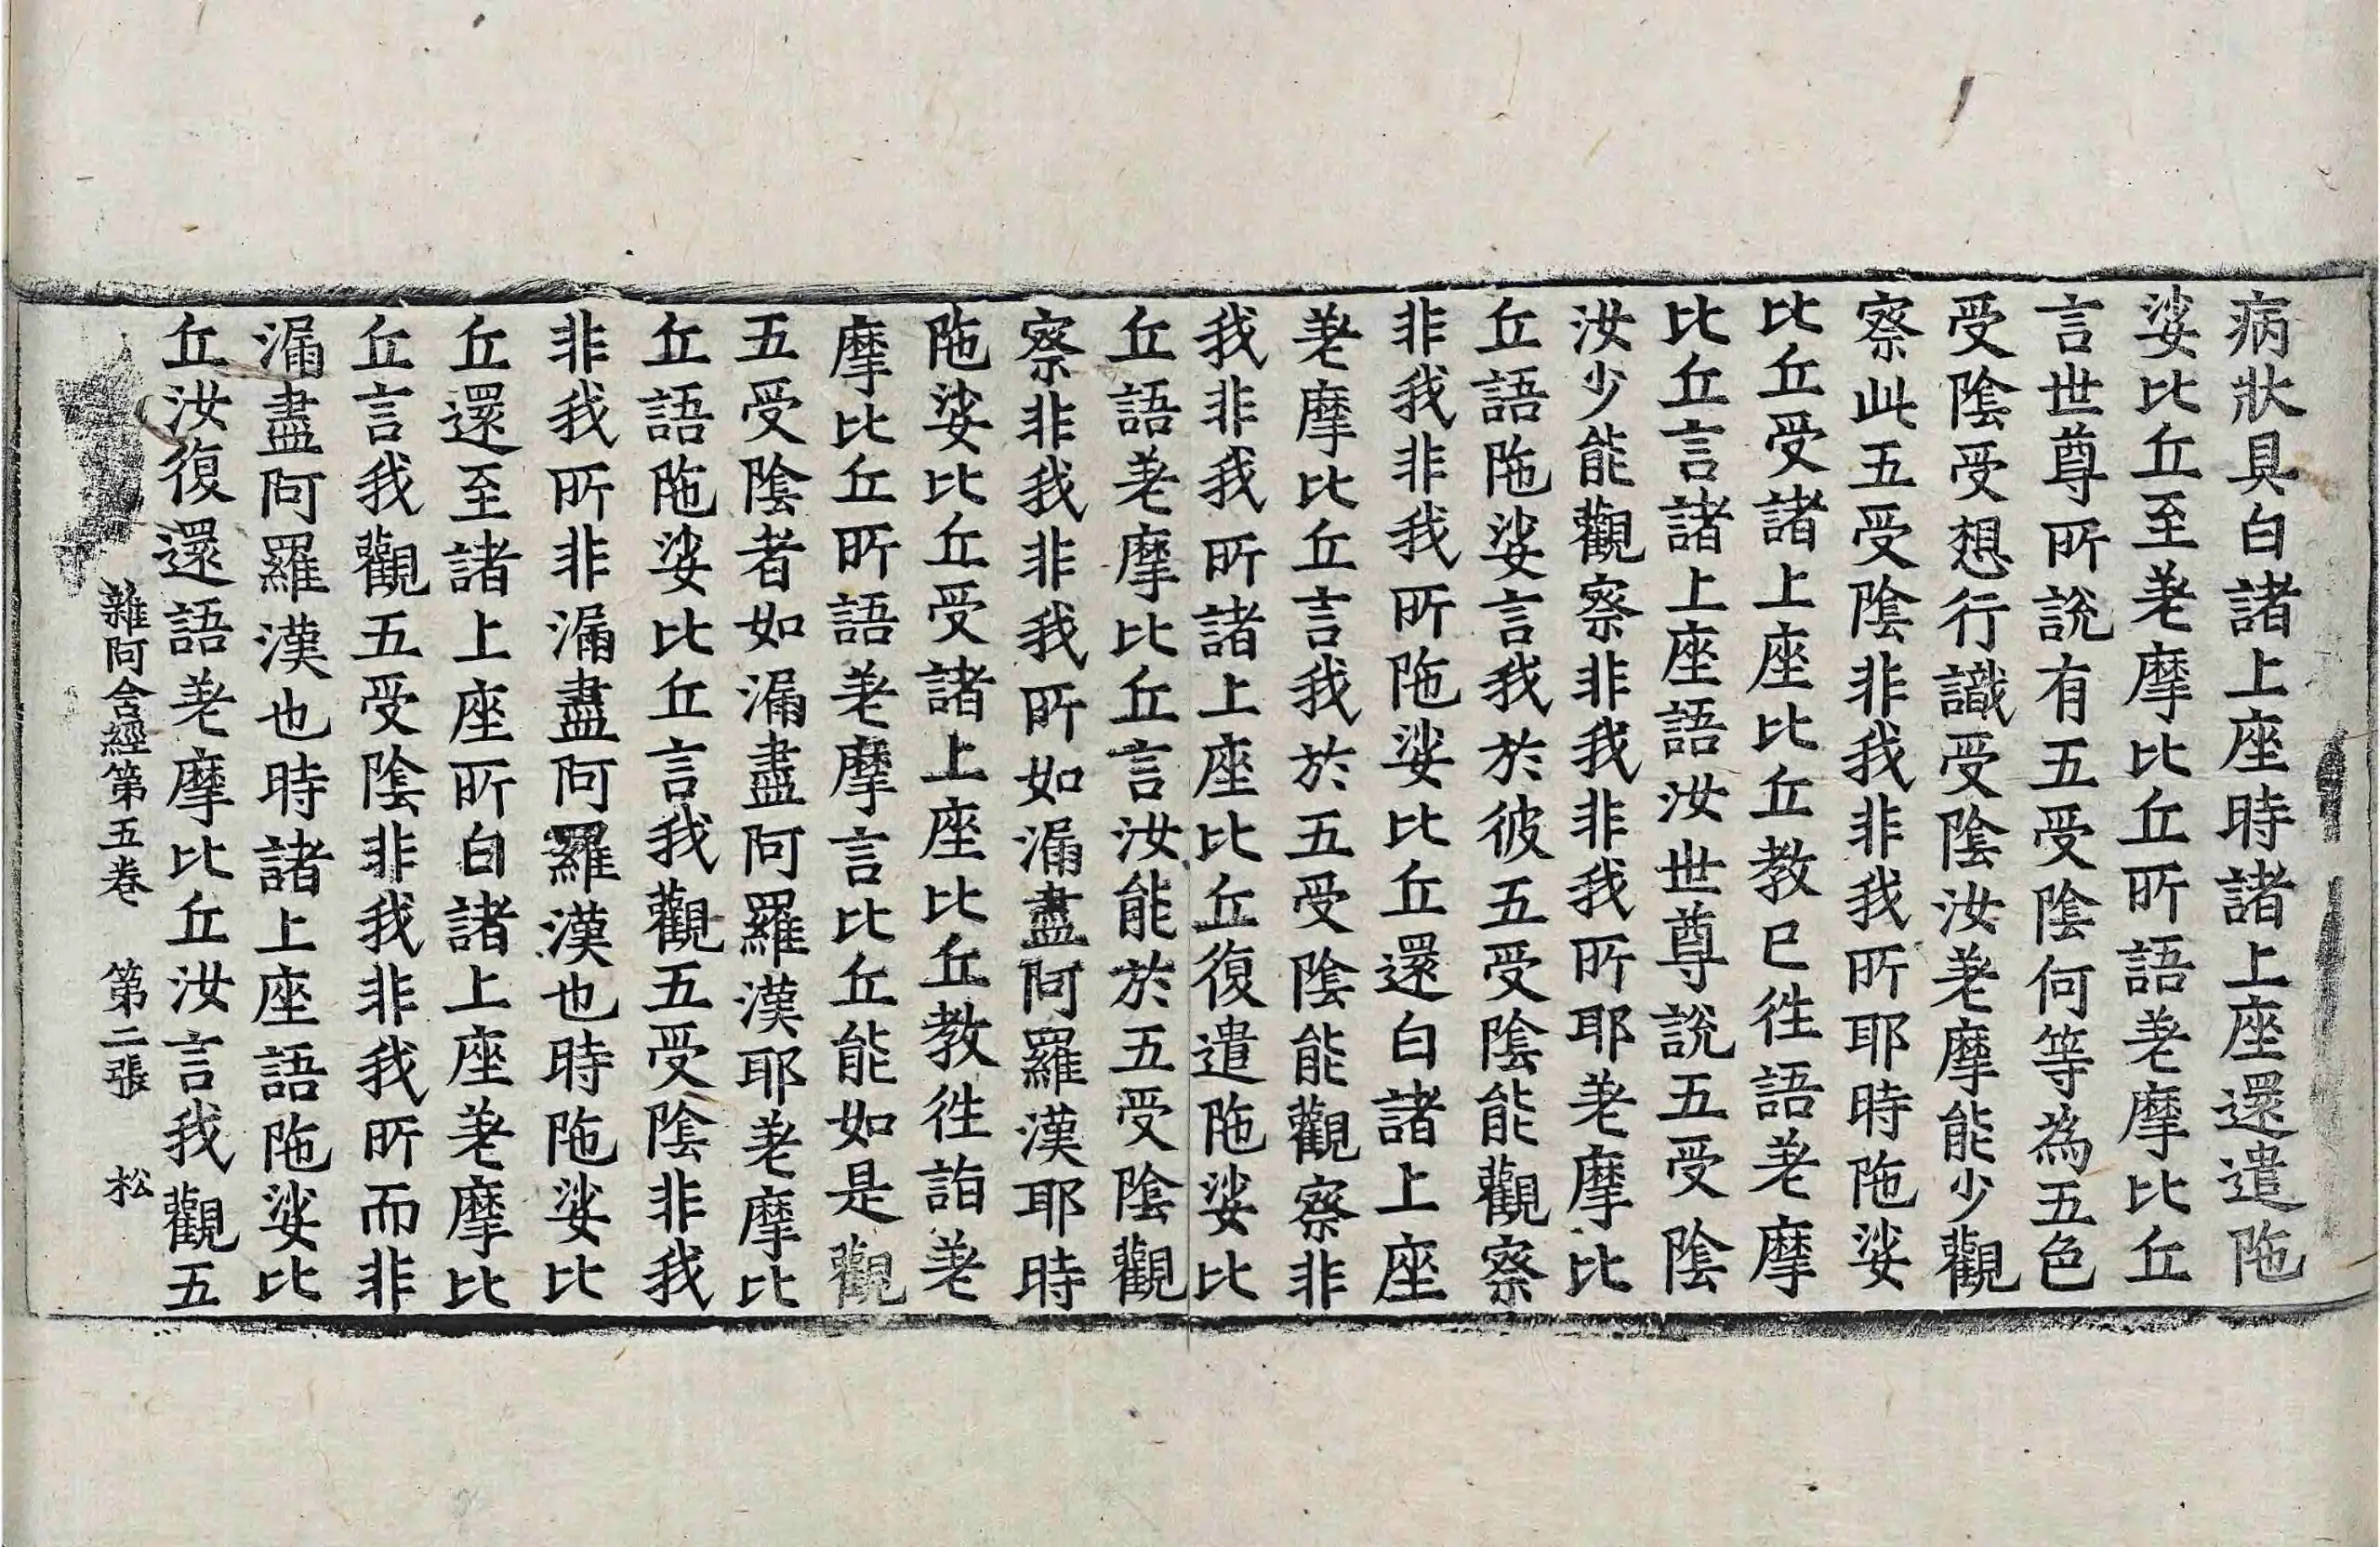 病狀具白諸上座時諸上座還遣陁
娑比丘至差摩比丘所語差摩比丘
言世尊所說有五受陰何等為五色
受陰受想行識受陰汝差摩能少觀
察此五受陰非我非我所耶時陁娑
比丘受諸上座比丘教已往語差摩
比丘言諸上座語汝世尊說五受陰
汝少能觀察非我非我所耶差摩比
丘語陁娑言我於彼五受陰能觀察
非我非我所陁娑比丘還白諸上座
差摩比丘言我於五受陰能觀察非
我非我所諸上座比丘復遣陁娑比
丘語差摩比丘言汝能於五受陰觀
察非我非我所如漏盡阿羅漢耶時
陁娑比丘受諸上座比丘教往詣差
摩比丘所語差摩言比丘能如是觀
五受陰者如漏盡阿羅漢耶差摩比
丘語陁娑比丘言我觀五受陰非我
非我所非漏盡阿羅漢也時陁娑比
丘還至諸上座所白諸上座差摩比
丘言我觀五受陰非我非我所而非
漏盡阿羅漢也時諸上座語陁娑比
丘汝復還語差摩比丘汝言我觀五
雜阿含經第五卷 第二張 松